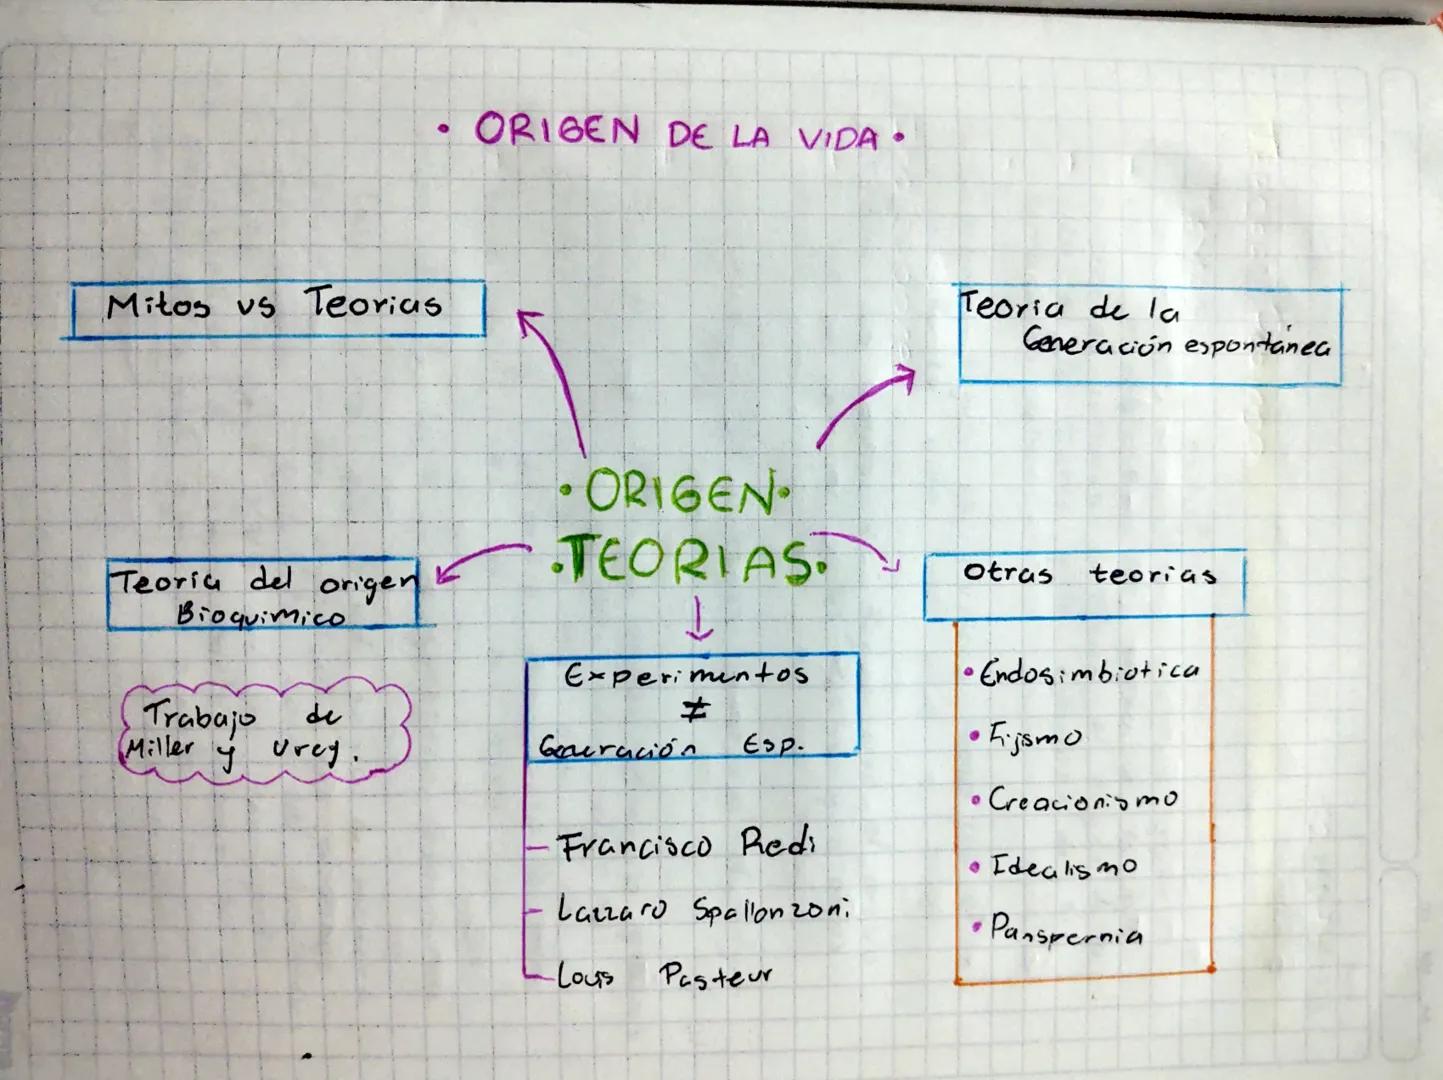 • ORIGEN DE LA VIDA •
Mitos vs Teorias
Teoria de la
Generación espontánea
• ORIGEN •
• TEORIAS •
Teoria del origen
Bioquimico
Trabajo de
Miller y Urey.
Experimentos
≠
Generación Esp.
Francisco Redi
Lazzaro Spallonzoni
Louis Pasteur
Otras teorias
• Endosimbiotica
• Fijismo
• Creacionismo
• Idealismo
• Panspernia